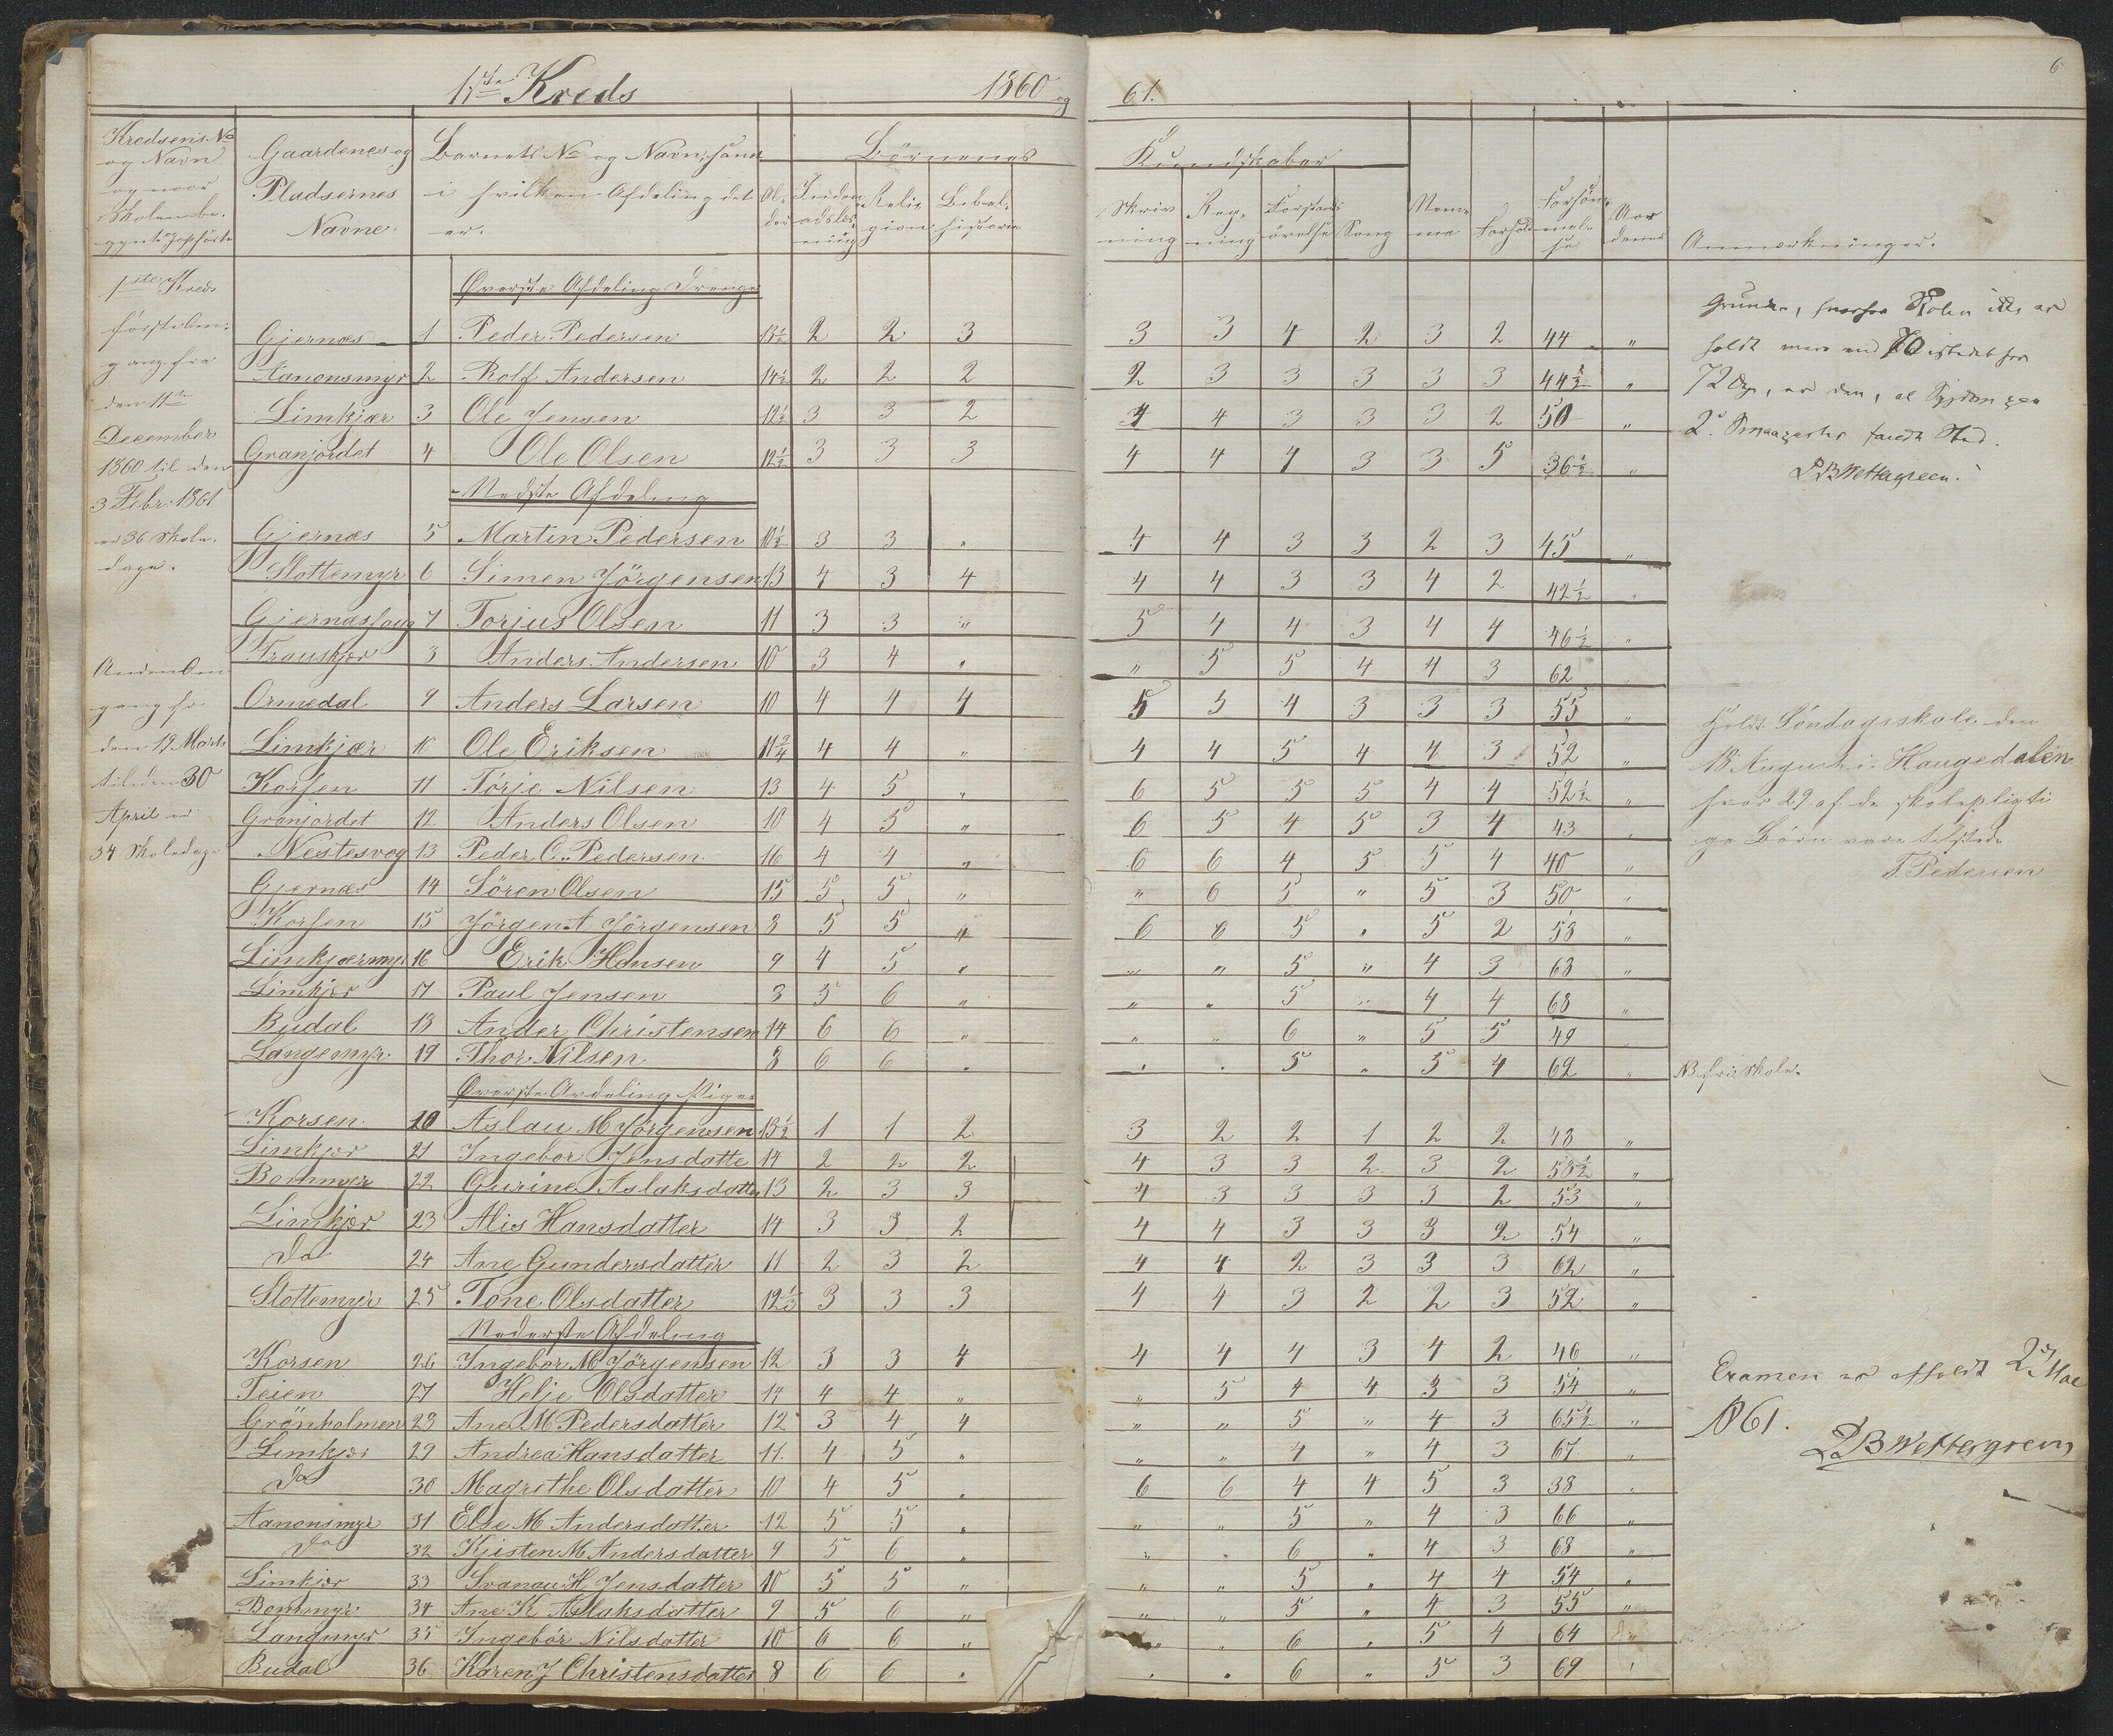 1ste Kreds 1860 og 61. 6
Kredsens No og Navn og naar Skolen be-
Gaardenes og Pladsernes Navne.
Barnets No og Navn, samt i hvilken Afdeling det er.
Al-der
Børnenes Kundskaber
Religion
Bibelhistorie
Skrivning
Regning
Forstandsøvelse
Sang
Forhold
Forsømmelse
Anmærkninger.
1ste Kreds
første Om-
gang fra
den 11te
December
1860 til den
3 Febr. 1861
er 36 Skole-
dage.
Anden Om
gang fra
den 19 Marts
til den 30
April er
34 Skoledage
Øverste Afdeling Drenge
Gjernæs 1 Peder Pedersen 13½ 2 2 3 3 3 4 2 3 2 44 "
Aanonsmyr 2 Rolf Andersen 14½ 2 2 2 2 3 3 3 3 3 44½ "
Limkjær 3 Ole Jensen 12½ 3 3 2 4 4 3 3 3 2 50 "
Granjordet 4 Ole Olsen 12½ 3 3 3 4 4 4 3 3 5 36½ "
Nedste Afdeling
Gjernæs 5 Martin Pedersen 10½ 3 3 " 4 4 3 3 2 3 45 "
Slottemyr 6 Simen Jörgensen 13 4 3 4 4 4 3 3 4 2 42½ "
7 Torjus Olsen 11 3 3 " 5 4 4 3 4 4 46½ "
8 Anders Andersen 10 3 4 " " 5 5 4 4 3 62 "
Ormedal 9 Anders Larsen 10 4 4 4 5 5 4 3 3 3 55 "
Limkjær 10 Ole Eriksen 11¾ 4 4 " 4 4 5 4 4 3 52 "
Korsen 11 Törje Nilsen 13 4 5 " 6 5 5 5 4 4 52½ "
Granjordet 12 Anders Olsen 10 4 5 " 6 5 4 5 3 4 43 "
Nestesvog 13 Peder C. Pedersen 16 4 4 " 6 6 4 5 5 4 40 "
Gjernæs 14 Sören Olsen 15 5 5 " " 6 5 " 5 3 50 "
Korsen 15 Jörgen A Jörgensen 8 5 5 " 6 6 5 " 5 2 53 "
Limkjærmyr 16 Erik Hansen 9 4 5 " " " 5 " 4 3 63 "
Limkjær 17 Paul Jensen 8 5 6 " " " 5 " 4 4 68 "
Budal 18 Ander Christensen 14 6 6 " " " 6 " 5 5 49
Langemyr 19 Thor Nilsen 8 6 6 " " " 5 " 5 4 62 "
Øverste Avdeling Piger
Korsen 20 Aslau M Jörgensen 13½ 1 1 2 3 2 2 1 2 2 43 "
Limkjær 21 Ingebor Jensdatte 14 2 2 2 4 3 3 2 3 2 53½ "
Bommyr 22 Gurine Aslaksdatter 13 2 3 3 4 3 3 3 3 2 53 "
Limkjær 23 Alis Hansdatter 14 3 3 2 4 4 3 3 3 2 54 "
Do 24 Ane Gundersdatter 11 2 3 2 4 4 2 3 3 3 62 "
Slottemyr 25 Tone Olsdatter 12½ 3 3 3 4 4 3 2 2 3 52 "
Nederste Afdeling
Korsen 26 Ingebor M Jörgensen 12 3 3 4 4 4 4 3 4 2 46 "
Teien 27 Helje Olsdatter 14 4 4 " " 5 4 4 3 3 54 "
Grönholmen 28 Ane M Pedersdatter 12 3 4 4 " " 5 " 4 3 65½ "
Limkjær 29 Andrea Hansdatter 11 4 5 " " " 4 " 4 3 67 "
Do 30 Magrethe Olsdatter 10 4 5 " 6 6 4 4 5 3 38 "
Aanonsmyr 31 Else M Andersdatter 12 5 5 " " " 5 " 4 3 66 "
Do 32 Kjisten M Andersdatter 9 5 6 " " " 6 " 4 3 68 "
Limkjær 33 Svanau H Jensdatter 10 5 5 " " " 5 " 4 4 54 "
Bommyr 34 Ane K Aslaksdatter 9 5 6 " " " 5 " 4 3 55 "
Langmyr 35 Ingebör Nilsdatter 10 6 6 " " " 6 " 5 4 64
Budal 36 Karen J Christensdatter 8 6 6 " " " 6 " 5 3 69 "
Grunden, hvorfor Skolen ikke er
holdt mere end 70 istedet for
72 Dage, er den, at Sygdom paa
2 fandt Sted.
P B Wettergreen.
holdt Søndagsskole den
18 August i Haugedalen
hvor 29 af de skolepligti
ge Børn vare tilstede
T. Pedersen
NB fri Skole.
Examen er afholdt 2 Mai
1861.
P B Wettergreen